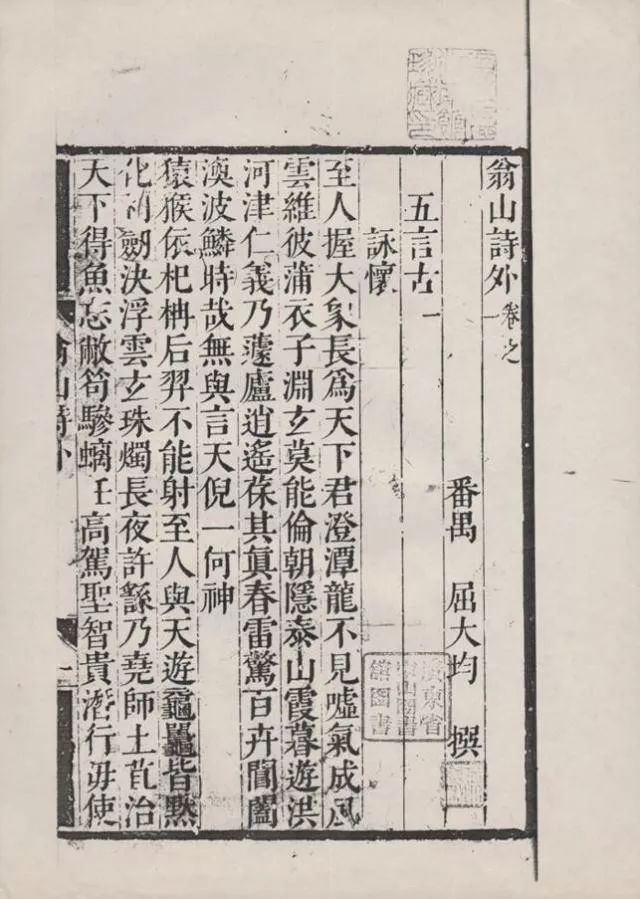 翁山詩外 卷之一
番禺 屈大均 撰
五言古一
詠懷
至人握大象長爲天下君澄潭龍不見噓氣成風
雲維彼蒲衣子淵玄莫能倫朝隱泰山霞暮遊洪
河津仁義乃蘧廬逍遙葆其眞春雷驚百卉閶闔
渙波鱗時哉無與言天倪一何神
猿猴依杞柟后羿不能射至人與天遊龜鼉皆黙
化 劒決浮雲玄珠燭長夜許繇乃堯師土苴治
天下得魚忘敝笱驂螭任高駕聖智貴潛行毋使
翁山詩外
廣東省
中山圖書
館圖書